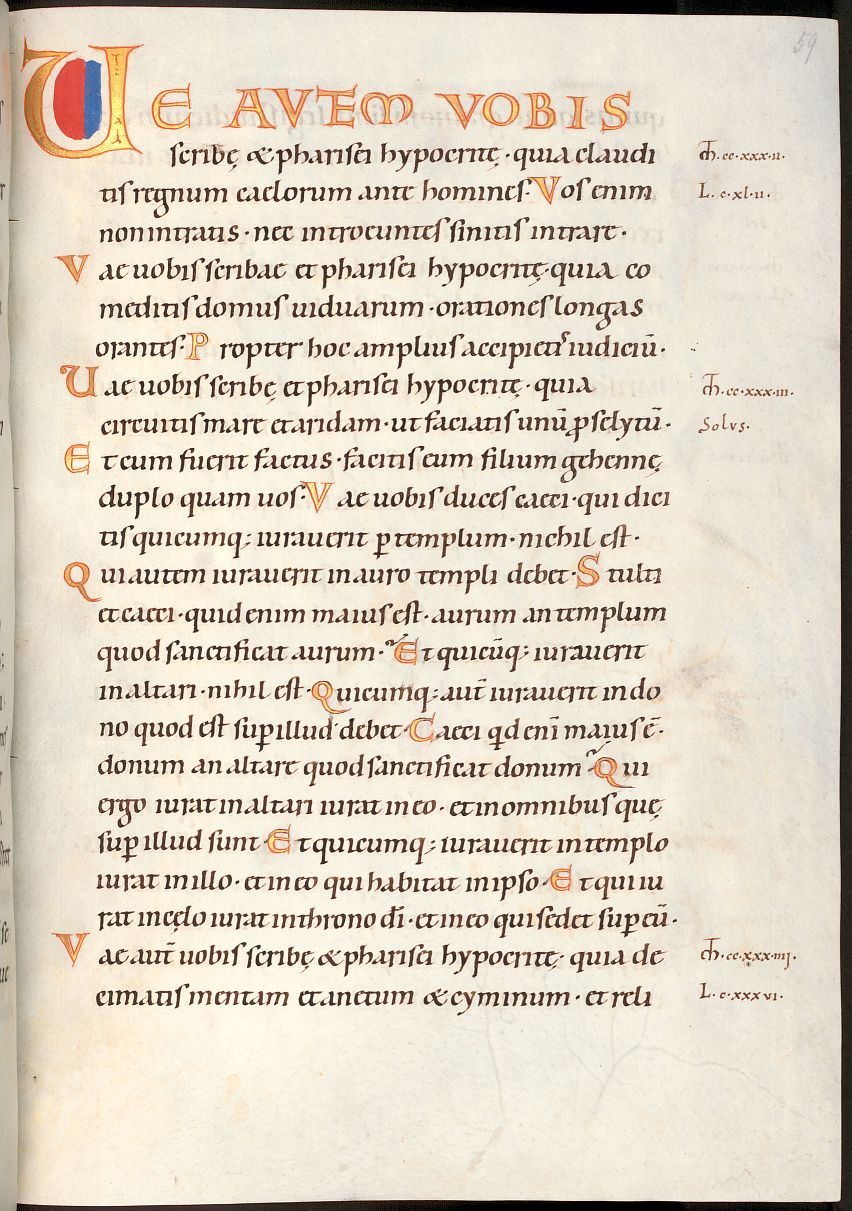 59
UE AVTEM VOBIS
scribę & pharisei hypocritę · quia claudi
tis regnum caelorum ante homines · Vos enim
non intratis · nec introeuntes sinitis intrare ·
Vae uobis scribae et pharisei hypocritę · quia co
meditis domus uiduarum · orationes longas
orantes · Propter hoc amplius accipietis iudiciū ·
Uae uobis scribę et pharisei hypocritę · quia
circuitis mare et aridam · ut faciatis unū p̱selytū ·
Et cum fuerit factus · facitis eum filium gehennę
duplo quam uos · Vae uobis duces caeci · qui dici
tis quicumq; iurauerit ꝑ templum · nichil est ·
Qui autem iurauerit in auro templi debet · Stulti
et caeci · quid enim maius est · aurum an templum
quod sanctificat aurum · Et quicūq; iurauerit
in altari · nihil est · Quicumq; aut̄ iurauerit in do
no quod est suꝑ illud · debet · Caeci qd enī maius ē ·
donum an altare quod sanctificat donum · Qui
ergo iurat in altari iurat in eo · et in omnibus quę
suꝑ illud sunt · Et quicumq; iurauerit in templo
iurat in illo · et in eo qui habitat in ipso · Et qui iu
rat in cęlo iurat in throno dī · et in eo qui sedet suꝑ eū ·
Vae aut̄ uobis scribę & pharisei hypocritę · quia de
cimatis mentam et anetum & cyminum · et reli
m̄ · cc · xxx · ii ·
L · c · xl · ii ·
m̄ · cc · xxx · iii ·
Solus ·
m̄ · cc · xxx · iiij ·
L · c · xxxvi ·